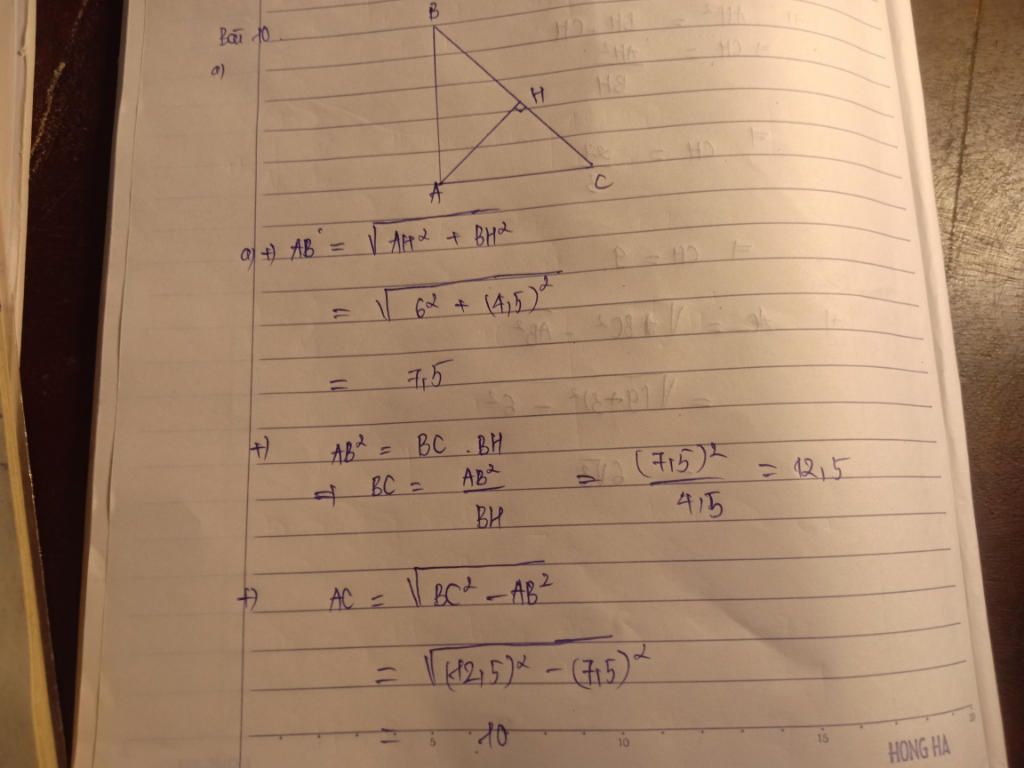 B
Bài 10
a)
H
A
C
a) +) AB = √AH² + BH²
= √6² + (4,5)²
= 7,5
+) AB² = BC . BH
⇒ BC = AB²/BH = (7,5)²/4,5 = 12,5
+) AC = √BC² - AB²
= √(12,5)² - (7,5)²
= 10
5 10 15 20
HONG HA